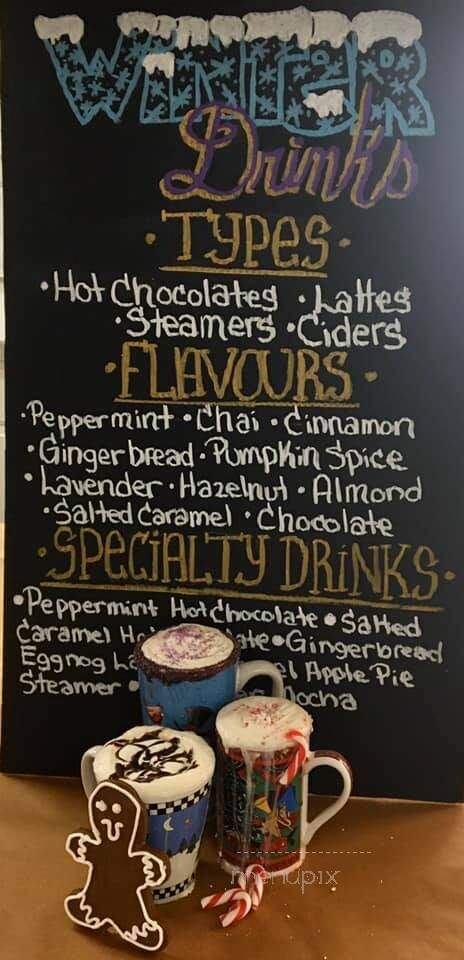 WINTER
Drinks
· TYPES ·
· Hot Chocolates · Lattes
· Steamers · Ciders
· FLAVOURS ·
· Peppermint · Chai · Cinnamon
· Gingerbread · Pumpkin Spice
· Lavender · Hazelnut · Almond
· Salted Caramel · Chocolate
· SPECIALTY DRINKS ·
• Peppermint Hot Chocolate • Salted
Caramel Ho ate • Gingerbread
Eggnog La el Apple Pie
Steamer • ocha
menupix